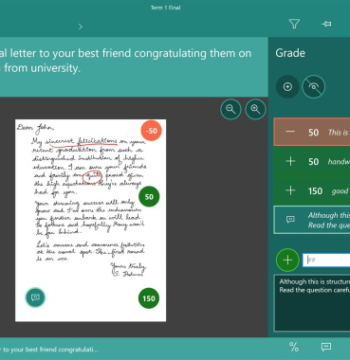 Term 1 final
al letter to your best friend congratulating them on
from university.
Grade
Dear John,
My sincerest felicitations on your
recent graduation from such a
distinguished institution of higher
education. I am sure your friends
and family are
proud given
the high expectations they've always
had for you.
Your amazing success will only
grow and I'm sure the endeavours
you
embark on will lead
to fortune and hopefully fame won't
be far behind.
Let's
at the usual spot. The first round
is on me.
Yours
S.
-50
50
150
50 This is
50 handw
150 good
Although this
Read the que
Although this is structur
Read the question carefu
r to your best friend congratulati...
%